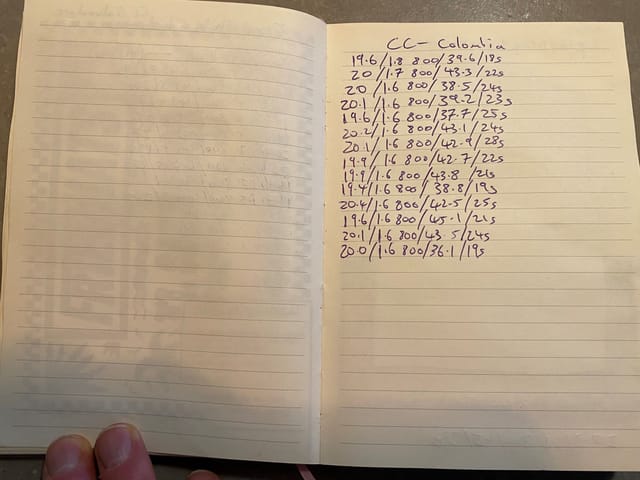 CC - Colombia
19.6/1.8 800/39.6/18s
20/1.7 800/43.3/22s
20/1.6 800/38.5/24s
20.1/1.6 800/39.2/23s
19.6/1.6 800/37.7/25s
20.2/1.6 800/43.1/24s
20.1/1.6 800/42.9/28s
19.9/1.6 800/42.7/22s
19.9/1.6 800/43.8 /21s
19.4/1.6 800/38.8/19s
20.4/1.6 800/42.5/25s
19.6/1.6 800/45.1/21s
20.1/1.6 800/43.5/24s
20.0/1.6 800/36.1/19s